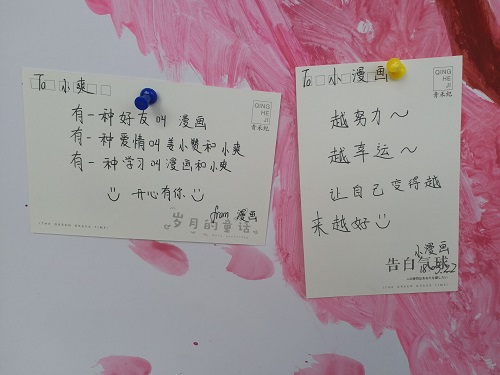 To 小爽
QING
HE
JI
青禾纪
有一种好友叫 漫画
有一种爱情叫 姜小赞和小爽
有一种学习叫漫画和小爽
开心有你
from 漫画
岁月的童话
To 小漫画
QING
HE
JI
青禾纪
越努力～
越幸运～
让自己变得越
来越好
小漫画
告白气球